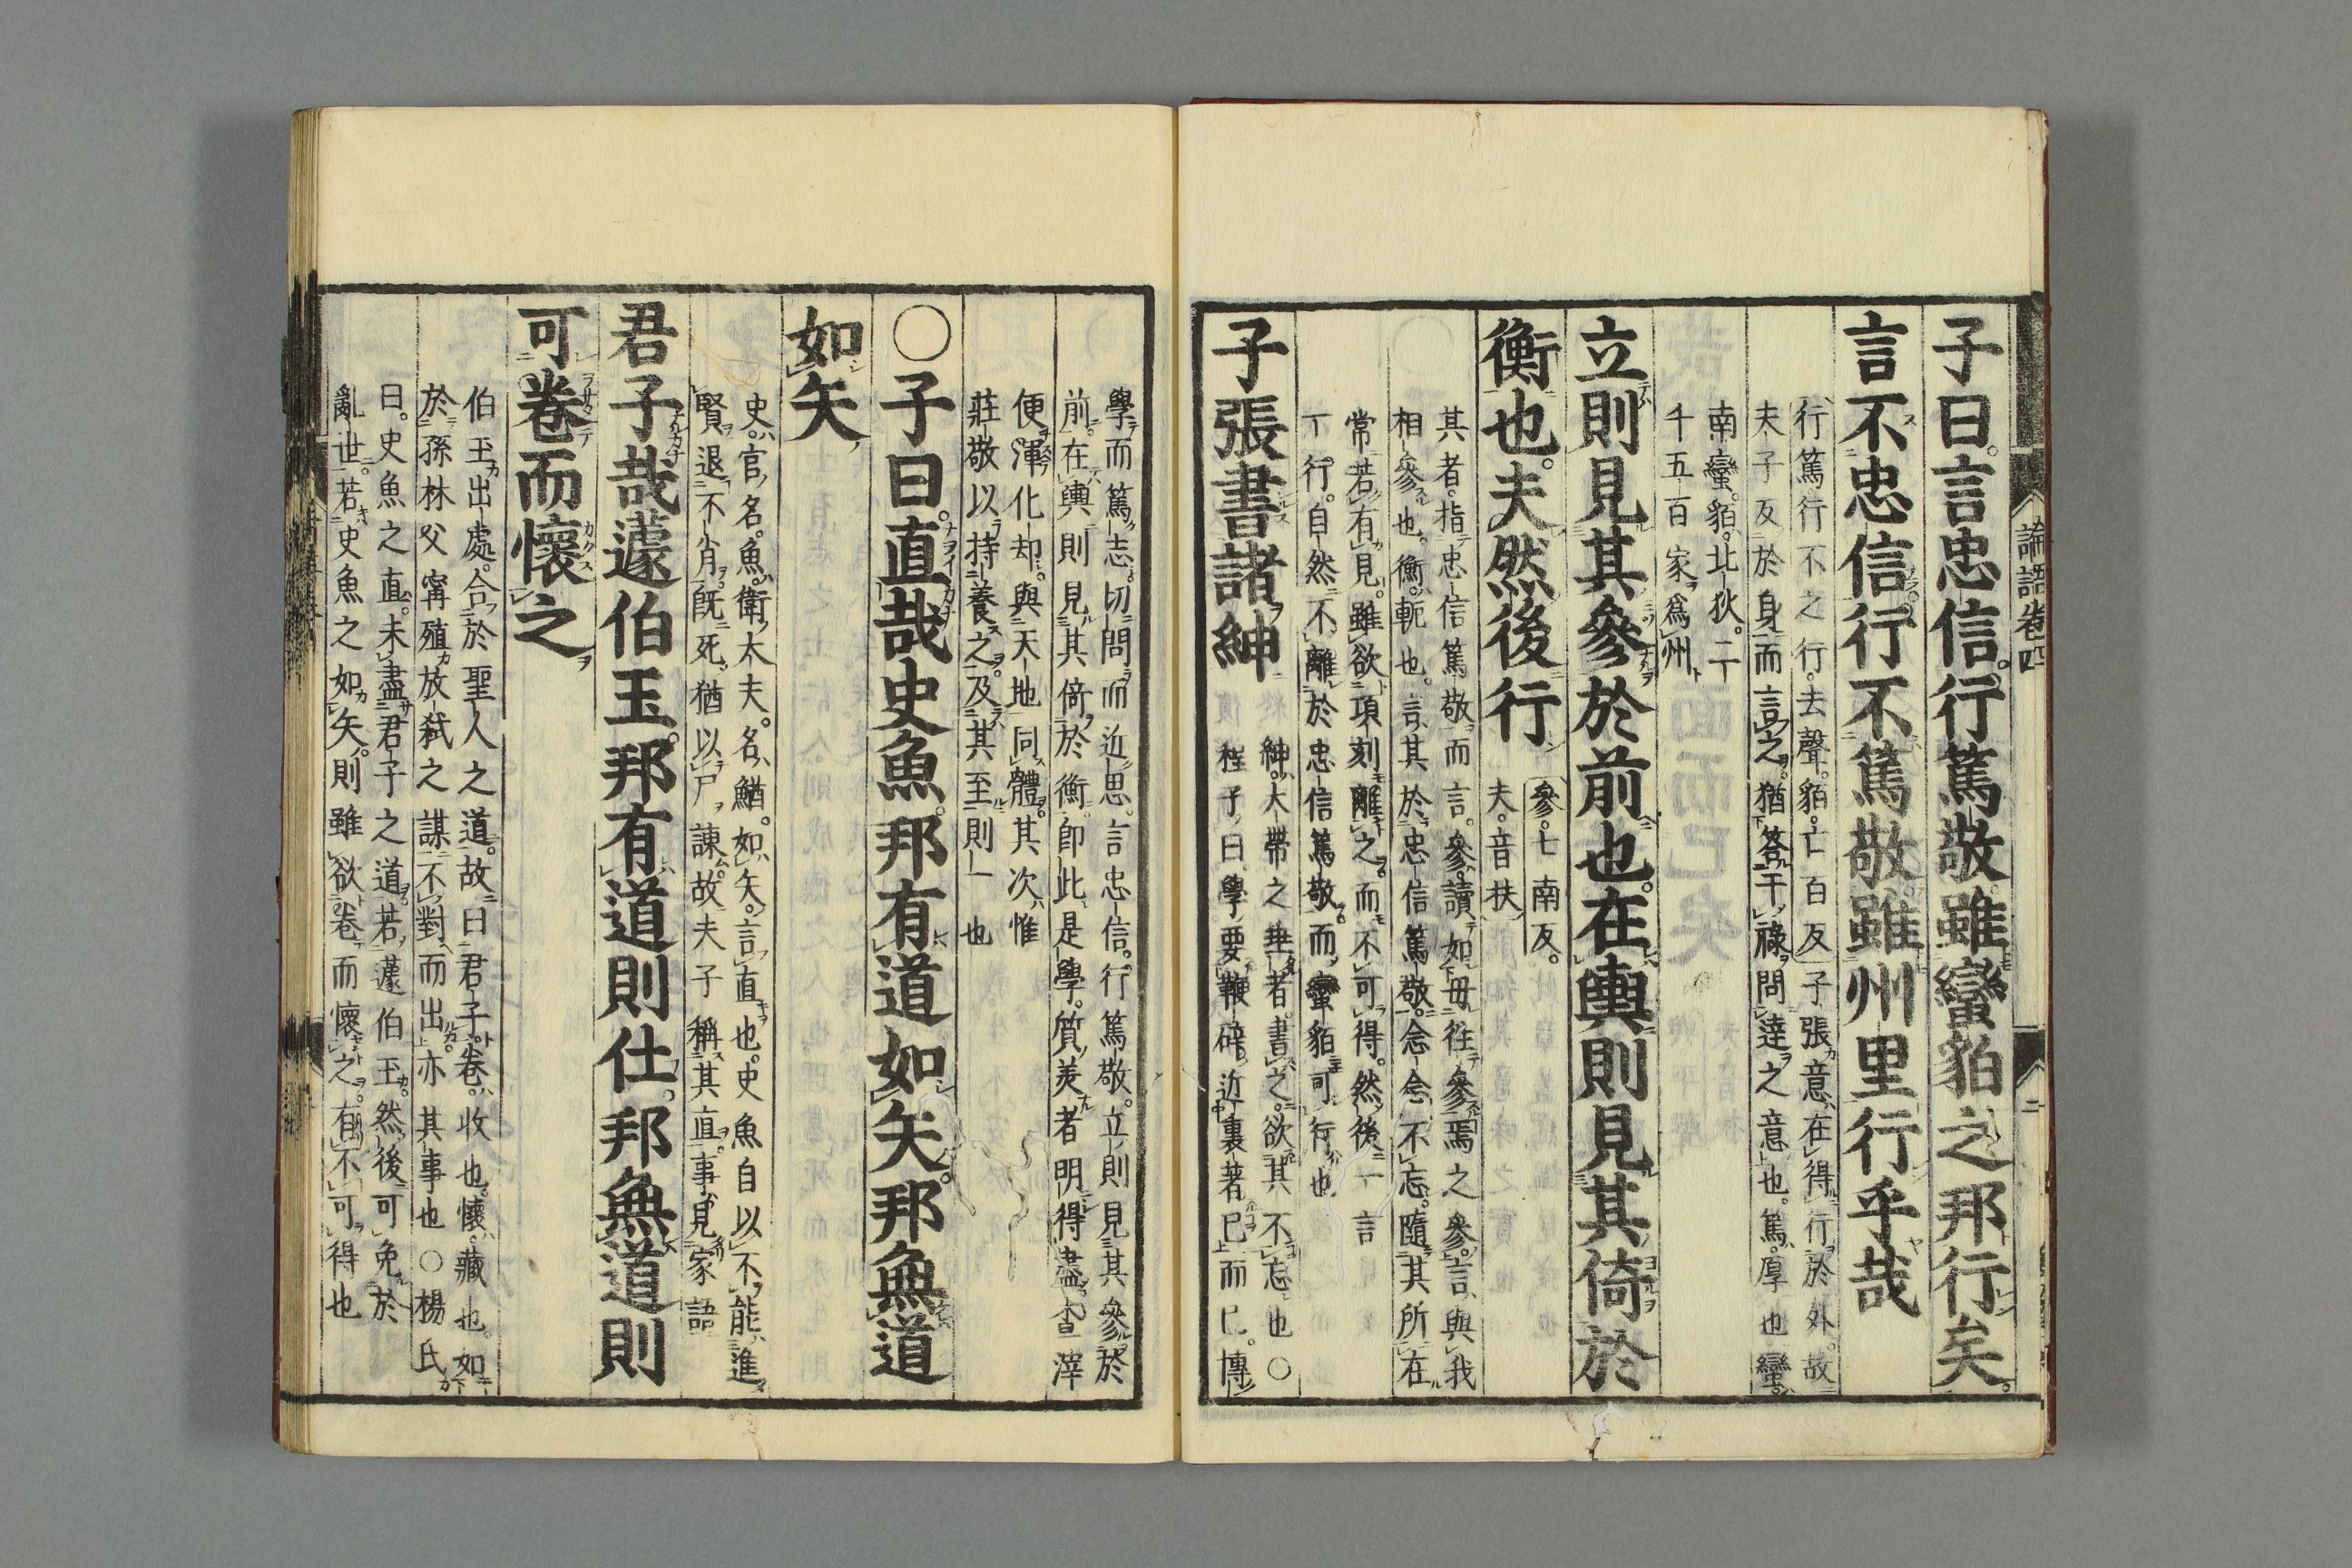 論語卷四 二
子曰。言忠信。行篤敬。雖蠻貊之邦行矣。
言不忠信。行不篤敬。雖州里行乎哉
行篤行不之行。去聲。貊。亡百反 子張意在得行於外。故
夫子反於身而言之。猶答干祿問達之意也。篤。厚也。蠻。
南蠻。貊。北狄。二
千五百家爲州
立則見其參於前也。在輿則見其倚於
衡也。夫然後行
參。七南反。
夫。音扶
其者。指忠信篤敬而言。參。讀如毋往參焉之參。言與我
相參也。衡。軛也。言其於忠信篤敬。念念不忘。隨其所在
常若有見。雖欲項刻離之。而不可得。然後一言
一行。自然不離於忠信篤敬。而蠻貊可行也
子張書諸紳
紳。大帶之垂者。書之。欲其不忘也○
程子曰。學要鞭辟。近裏著已而已。博
學而篤志。切問而近思。言忠信。行篤敬。立則見其參於
前。在輿則見其倚於衡。卽此是學。質美者明得盡。査滓
便渾化却。與天地同體。其次惟
莊敬以持養之。及其至則一也
○子曰。直哉史魚。邦有道如矢。邦無道
如矢
史。官名。魚。衛大夫。名鰌。如矢。言直也。史魚自以不能進
賢退不肖。旣死。猶以尸諫。故夫子稱其直。事見家語
君子哉蘧伯玉。邦有道則仕。邦無道則
可卷而懷之
伯玉出處。合於聖人之道。故曰君子。卷。收也。懷。藏也。如
於孫林父甯殖放弑之謀。不對而出。亦其事也○楊氏
曰。史魚之直。未盡君子之道。若蘧伯玉。然後可免於
亂世。若史魚之如矢。則雖欲卷而懷之。有不可得也